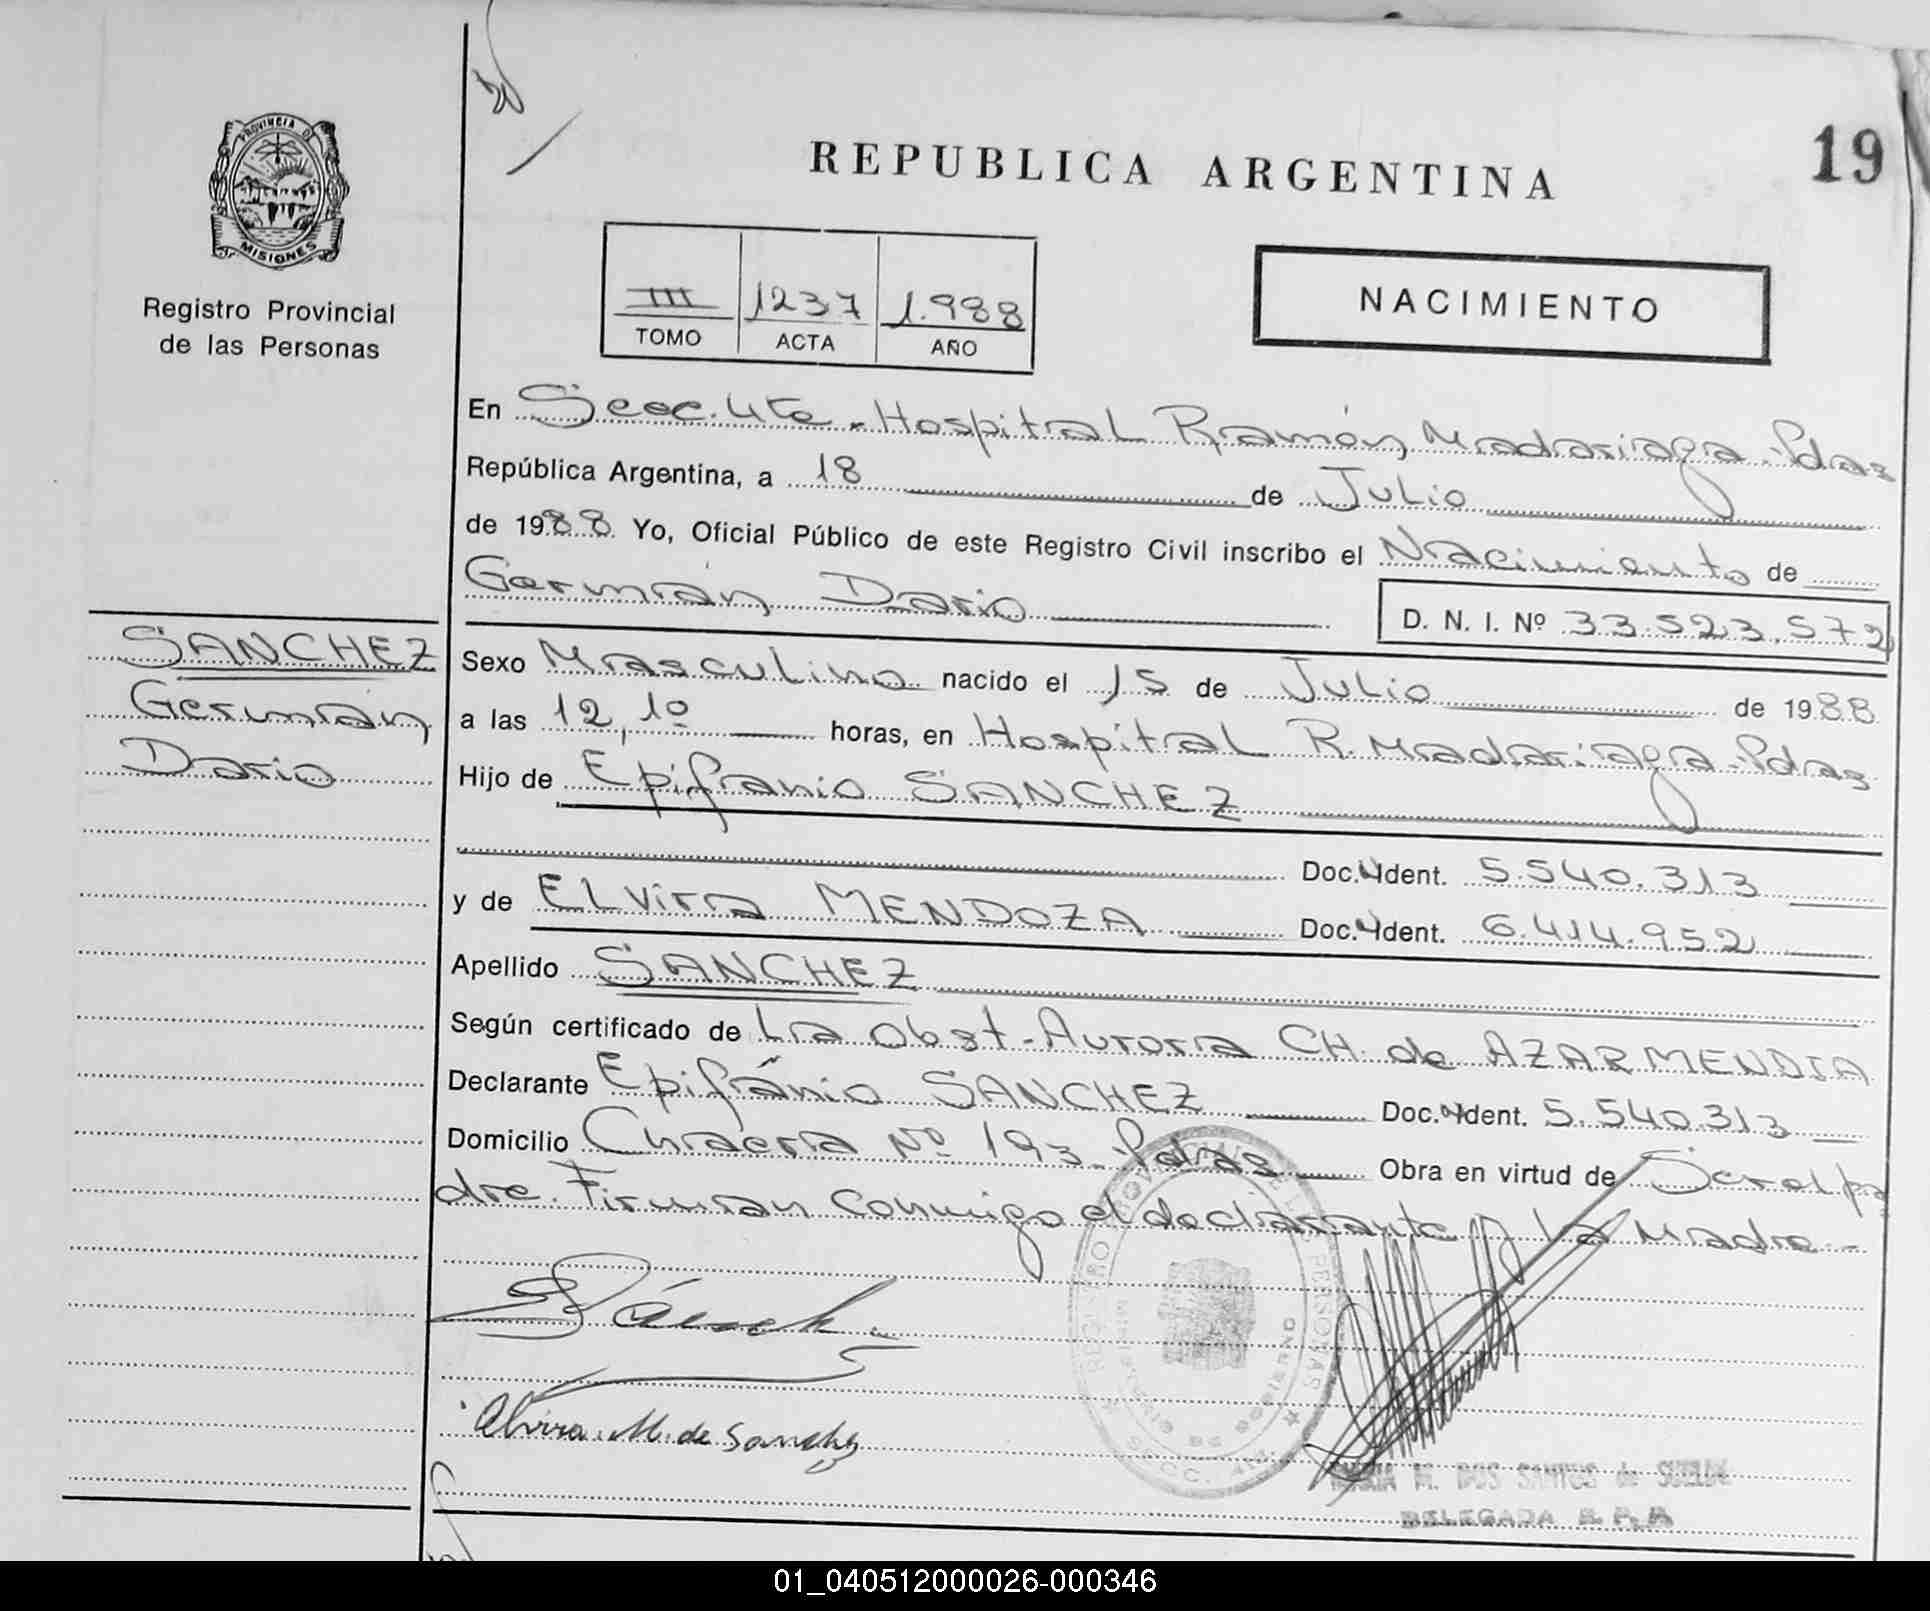 PROVINCIA DE
MISIONES
Registro Provincial
de las Personas
REPUBLICA ARGENTINA
19
III 1237 1.988
TOMO ACTA AÑO
NACIMIENTO
En Secc. 4ta. Hospital Ramón Madariaga. Pdas
República Argentina, a 18 de Julio
de 1988 Yo, Oficial Público de este Registro Civil inscribo el Nacimiento de
Germán Dario
D. N. I. Nº 33.523.572
SANCHEZ
Germán
Dario
Sexo Masculino nacido el 15 de Julio de 1988
a las 12,10 horas, en Hospital R. Madariaga. Pdas
Hijo de Epifanio SANCHEZ
Doc. Ident. 5.540.313
y de ELvira MENDOZA Doc. Ident. 6.414.952
Apellido SANCHEZ
Según certificado de La Obst. Aurora CH. de AZARMENDIA
Declarante Epifánio SANCHEZ Doc. Ident. 5.540.313
Domicilio Chacra Nº 193. Pdas Obra en virtud de Ser el pa
dre. Firman Conmigo el declarante y La Madre.-
Elvira M. de Sanchez
REGISTRO PROVINCIAL DE LAS PERSONAS
MINISTERIO DE GOBIERNO
SECC. 4ta.
MARIA M. DOS SANTOS de
DELEGADA R. P. P.
01_040512000026-000346